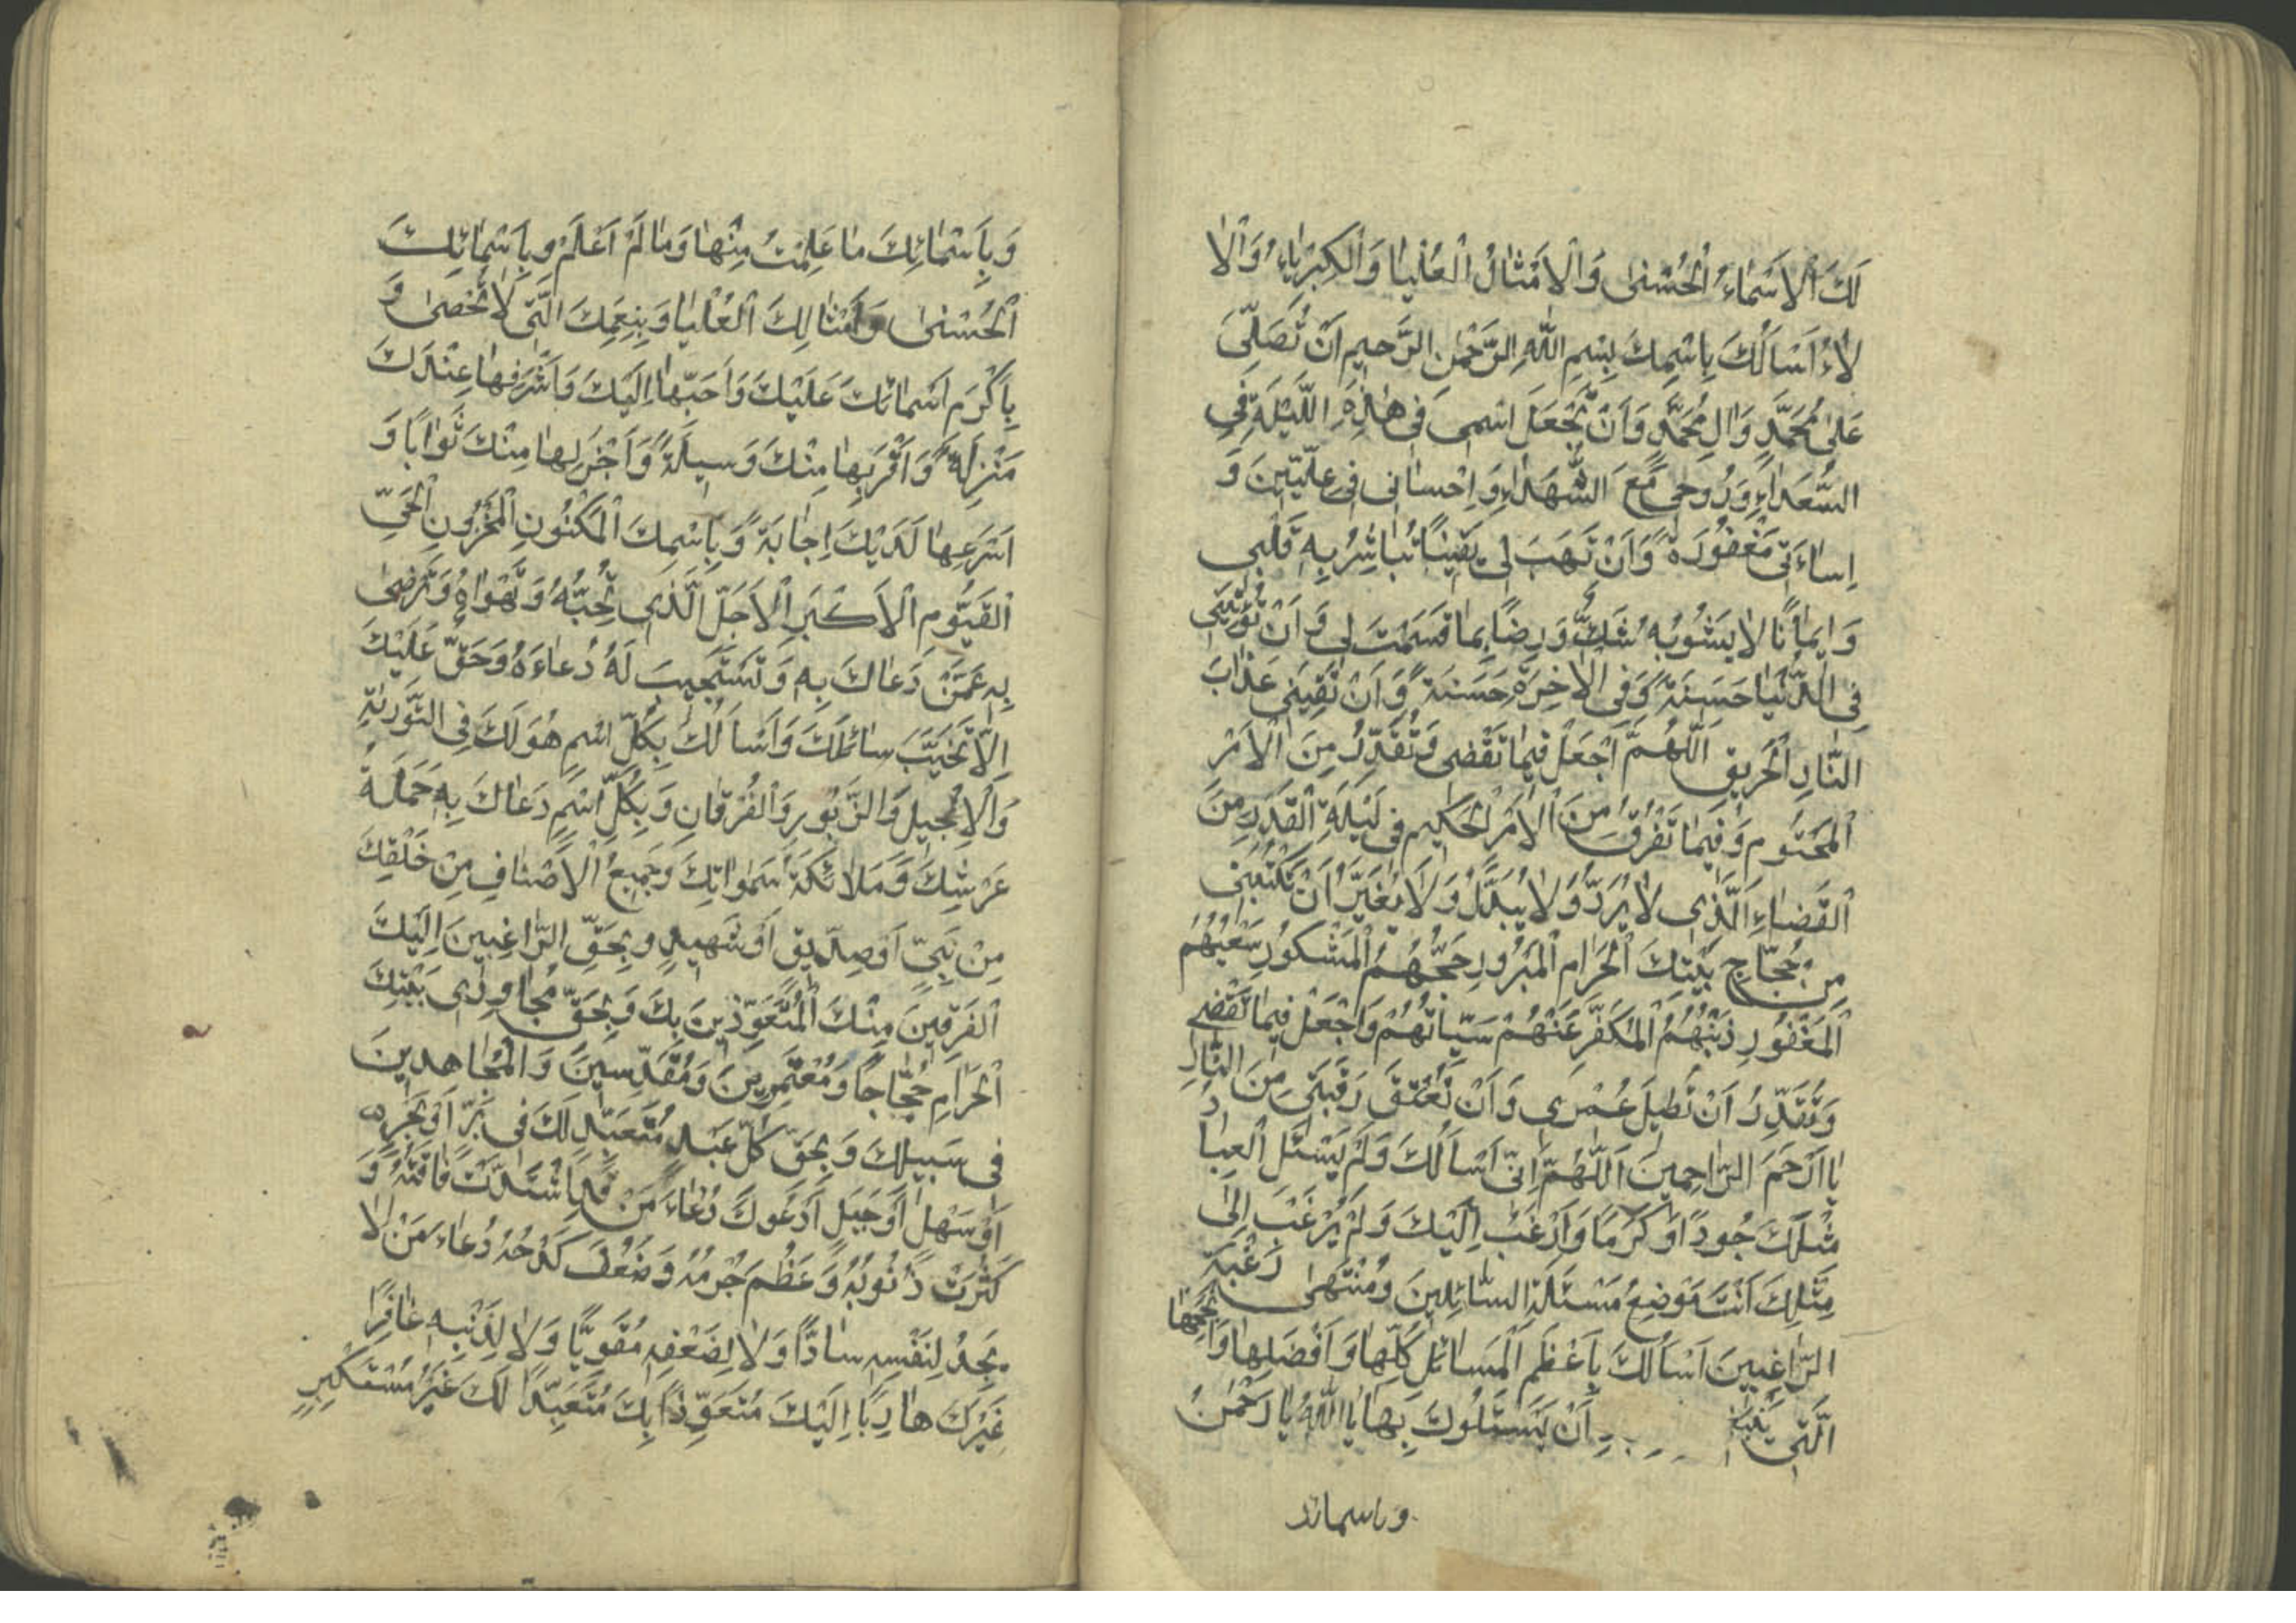 لَكَ الْاَسْمَاءُ الْحُسْنٰى وَالْاَمْثَالُ الْعُلْيَا وَالْكِبْرِيَاءُ وَالْاٰ
لَاءُ اَسْاَلُكَ بِاسْمِكَ بِسْمِ اللّٰهِ الرَّحْمٰنِ الرَّحِيمِ اَنْ تُصَلِّىَ
عَلٰى مُحَمَّدٍ وَاٰلِ مُحَمَّدٍ وَاَنْ تَجْعَلَ اسْمِى فِى هٰذِهِ اللَّيْلَةِ فِى
السُّعَدَاءِ وَرُوحِى مَعَ الشُّهَدَاءِ وَاِحْسَانِى فِى عِلِّيِّينَ وَ
اِسَاءَتِى مَغْفُورَةً وَاَنْ تَهَبَ لِى يَقِينًا تُبَاشِرُ بِهِ قَلْبِى
وَاِيمَانًا لَا يَشُوبُهُ شَكٌّ وَرِضًا بِمَا قَسَمْتَ لِى وَاَنْ تُؤْتِيَنِى
فِى الدُّنْيَا حَسَنَةً وَفِى الْاٰخِرَةِ حَسَنَةً وَاَنْ تَقِيَنِى عَذَابَ
النَّارِ الْحَرِيقِ اَللّٰهُمَّ اجْعَلْ فِيمَا تَقْضِى وَتُقَدِّرُ مِنَ الْاَمْرِ
الْمَحْتُومِ وَفِيمَا تَفْرُقُ مِنَ الْاَمْرِ الْحَكِيمِ فِى لَيْلَةِ الْقَدْرِ مِنَ
الْقَضَاءِ الَّذِى لَا يُرَدُّ وَلَا يُبَدَّلُ وَلَا يُغَيَّرُ اَنْ تَكْتُبَنِى
مِنْ حُجَّاجِ بَيْتِكَ الْحَرَامِ الْمَبْرُورِ حَجُّهُمُ الْمَشْكُورِ سَعْيُهُمُ
الْمَغْفُورِ ذَنْبُهُمُ الْمُكَفَّرِ عَنْهُمْ سَيِّئَاتُهُمْ وَاجْعَلْ فِيمَا تَقْضِى
وَتُقَدِّرُ اَنْ تُطِيلَ عُمْرِى وَاَنْ تُعْتِقَ رَقَبَتِى مِنَ النَّارِ
يَا اَرْحَمَ الرَّاحِمِينَ اَللّٰهُمَّ اِنِّى اَسْاَلُكَ وَلَمْ يَسْئَلِ الْعِبَادُ
مِثْلَكَ جُودًا وَكَرَمًا وَاَرْغَبُ اِلَيْكَ وَلَمْ يُرْغَبْ اِلٰى
مِثْلِكَ اَنْتَ مَوْضِعُ مَسْئَلَةِ السَّائِلِينَ وَمُنْتَهٰى رَغْبَةِ
الرَّاغِبِينَ اَسْاَلُكَ بِاَعْظَمِ الْمَسَائِلِ كُلِّهَا وَاَفْضَلِهَا وَاَنْجَحِهَا
الَّتِى يَنْبَغِى اَنْ يَسْئَلُوكَ بِهَا يَا اَللّٰهُ يَا رَحْمٰنُ
وباسمائك
وَبِاَسْمَائِكَ مَا عَلِمْتُ مِنْهَا وَمَا لَمْ اَعْلَمْ وَبِاَسْمَائِكَ
الْحُسْنٰى وَاَمْثَالِكَ الْعُلْيَا وَبِنِعَمِكَ الَّتِى لَا تُحْصٰى وَ
بِاَكْرَمِ اَسْمَائِكَ عَلَيْكَ وَاَحَبِّهَا اِلَيْكَ وَاَشْرَفِهَا عِنْدَكَ
مَنْزِلَةً وَاَقْرَبِهَا مِنْكَ وَسِيلَةً وَاَجْزَلِهَا مِنْكَ ثَوَابًا وَ
اَسْرَعِهَا لَدَيْكَ اِجَابَةً وَبِاسْمِكَ الْمَكْنُونِ الْمَخْزُونِ الْحَىِّ
الْقَيُّومِ الْاَكْبَرِ الْاَجَلِّ الَّذِى تُحِبُّهُ وَتَهْوَاهُ وَتَرْضٰى
بِهِ عَمَّنْ دَعَاكَ بِهِ وَتَسْتَجِيبَ لَهُ دُعَاءَهُ وَحَقٌّ عَلَيْكَ
اَلَّا تُخَيِّبَ سَائِلَكَ وَاَسْاَلُكَ بِكُلِّ اسْمٍ هُوَ لَكَ فِى التَّوْرٰيةِ
وَالْاِنْجِيلِ وَالزَّبُورِ وَالْفُرْقَانِ وَبِكُلِّ اسْمٍ دَعَاكَ بِهِ حَمَلَةُ
عَرْشِكَ وَمَلَائِكَةُ سَمٰوَاتِكَ وَجَمِيعُ الْاَصْنَافِ مِنْ خَلْقِكَ
مِنْ نَبِىٍّ اَوْ صِدِّيقٍ اَوْ شَهِيدٍ وَبِحَقِّ الرَّاغِبِينَ اِلَيْكَ
الْفَرِقِينَ مِنْكَ الْمُتَعَوِّذِينَ بِكَ وَبِحَقِّ مُجَاوِرِى بَيْتِكَ
الْحَرَامِ حُجَّاجًا وَمُعْتَمِرِينَ وَمُقَدِّسِينَ وَالْمُجَاهِدِينَ
فِى سَبِيلِكَ وَبِحَقِّ كُلِّ عَبْدٍ مُتَعَبِّدٍ لَكَ فِى بَرٍّ اَوْ بَحْرٍ
اَوْ سَهْلٍ اَوْ جَبَلٍ اَدْعُوكَ دُعَاءَ مَنْ قَدِ اشْتَدَّتْ فَاقَتُهُ وَ
كَثُرَتْ ذُنُوبُهُ وَعَظُمَ جُرْمُهُ وَضَعُفَ كَدْحُهُ دُعَاءَ مَنْ لَا
يَجِدُ لِنَفْسِهِ سَادًّا وَلَا لِضَعْفِهِ مُقَوِّيًا وَلَا لِذَنْبِهِ غَافِرًا
غَيْرَكَ هَارِبًا اِلَيْكَ مُتَعَوِّذًا بِكَ مُتَعَبِّدًا لَكَ غَيْرَ مُسْتَكْبِرٍ